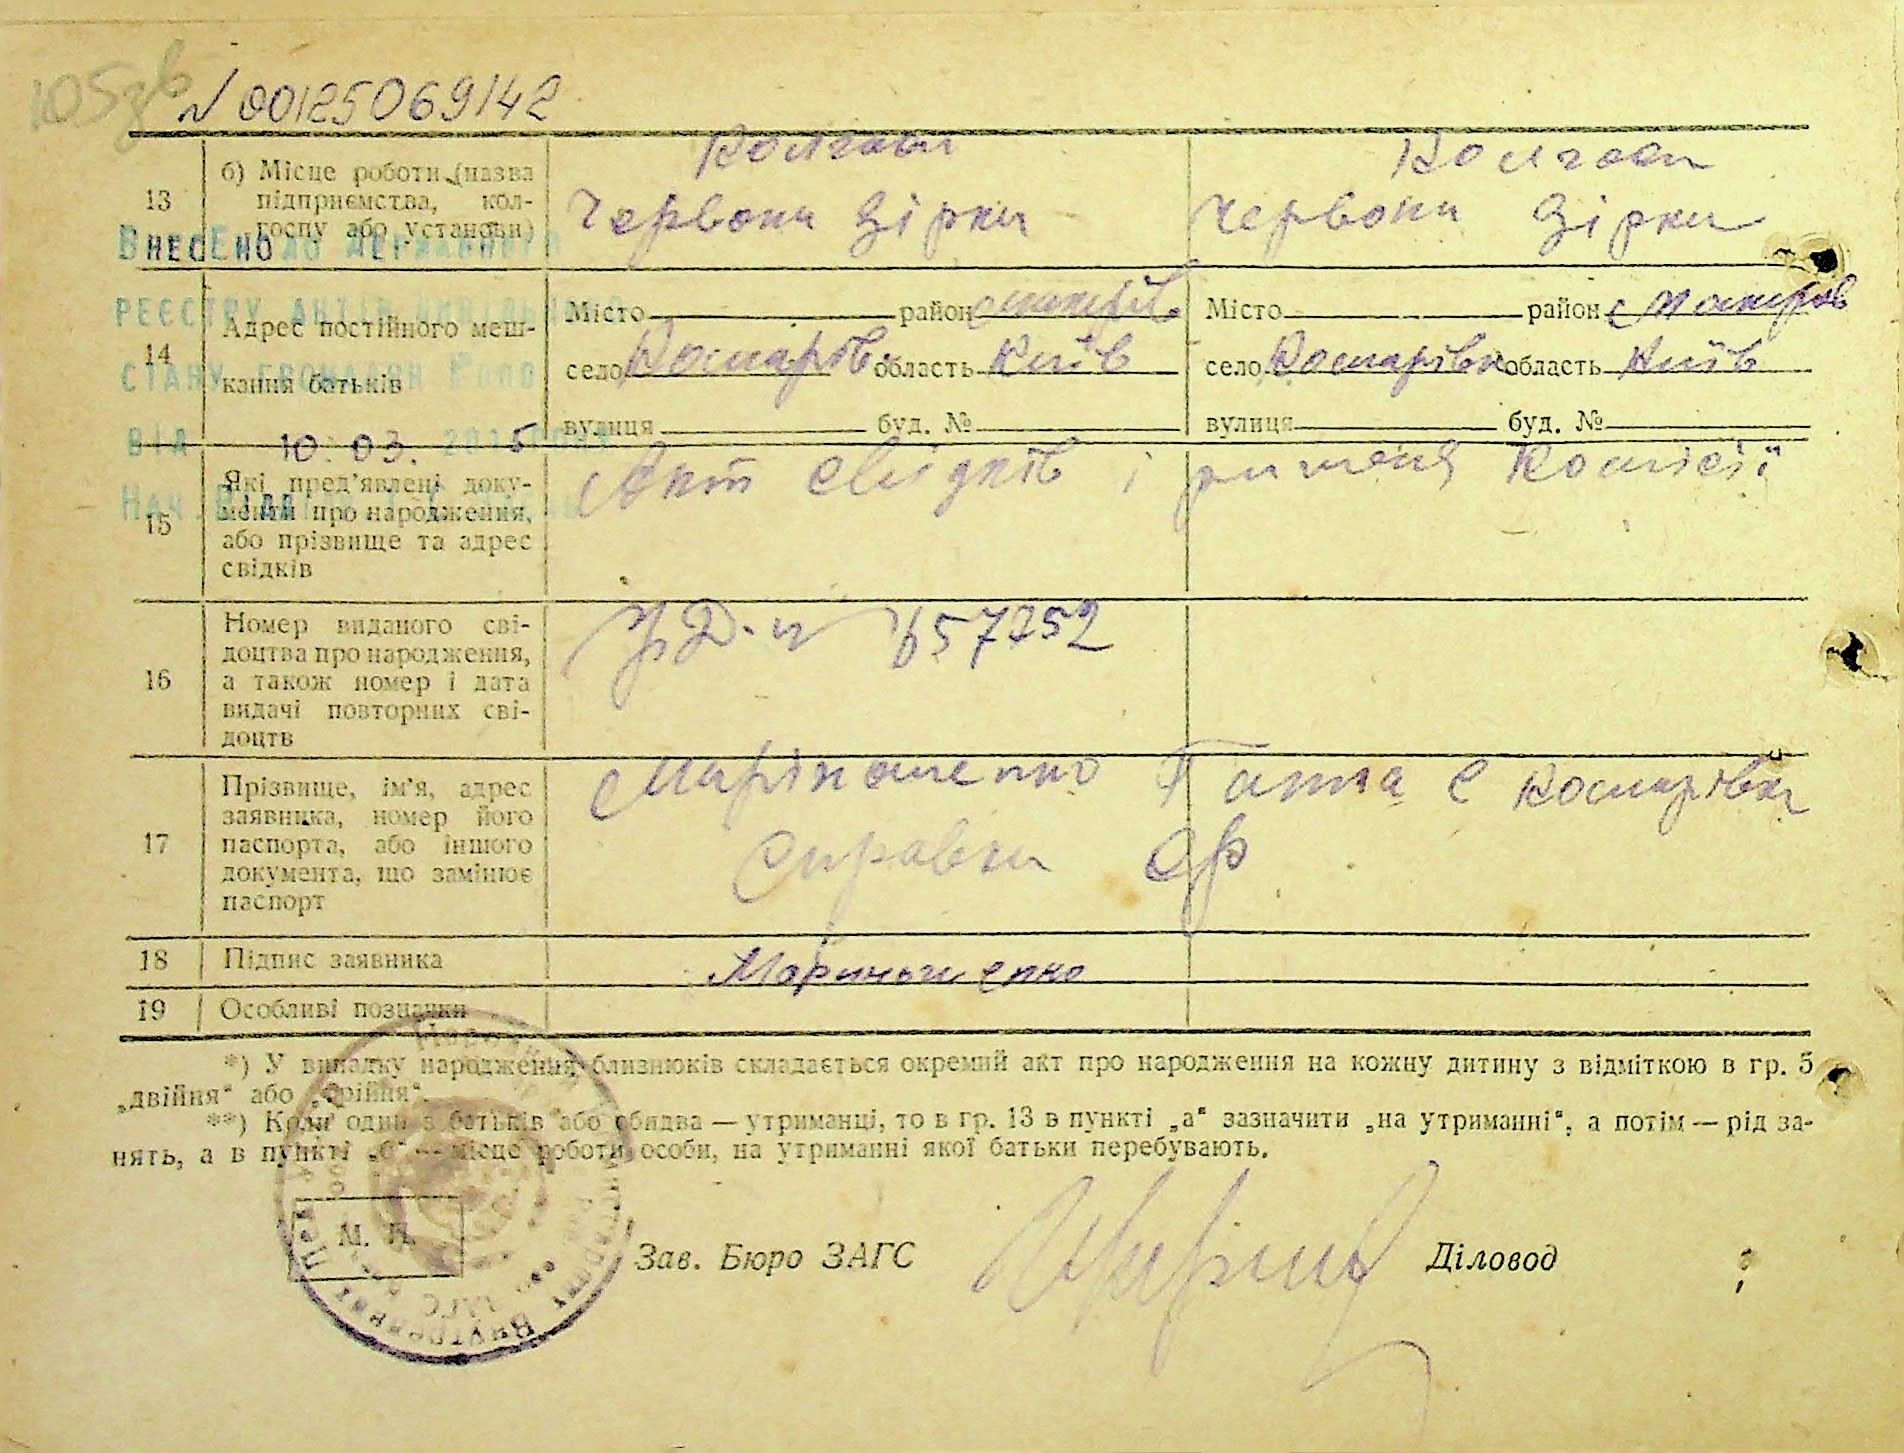 105зв № 00125069142
13 б) Місце роботи (назва підприємства, колгоспу або установи) Колгосп Колгосп
Червона Зірка Червона Зірка
ВНЕСЕНО ДО ДЕРЖАВНОГО
РЕЄСТРУ АКТІВ ЦИВІЛЬНОГО
СТАНУ ГРОМАДЯН
ВІД 10.03.2015
НАЧ. ВІДД
14 Адрес постійного мешкання батьків
Місто район Макарів Місто район Макарів
село Комарівка область Київ село Комарівка область Київ
вулиця буд. № вулиця буд. №
15 Які пред'явлені документи про народження, або прізвище та адрес свідків
Акт свідків і рішення комісії
16 Номер виданого свідоцтва про народження, а також номер і дата видачі повторних свідоцтв
17 Прізвище, ім'я, адрес заявника, номер його паспорта, або іншого документа, що замінює паспорт
Ганна с Комарівка
Справка
18 Підпис заявника
19 Особливі позначки
*) У випадку народження близнюків складається окремий акт про народження на кожну дитину з відміткою в гр. 5
„двійня“ або „трійня“.
**) Коли один з батьків або обидва — утриманці, то в гр. 13 в пункті „а“ зазначити „на утриманні“, а потім — рід за-
нять, а в пункті „б“ — місце роботи особи, на утриманні якої батьки перебувають.
М. П.
Зав. Бюро ЗАГС Діловод